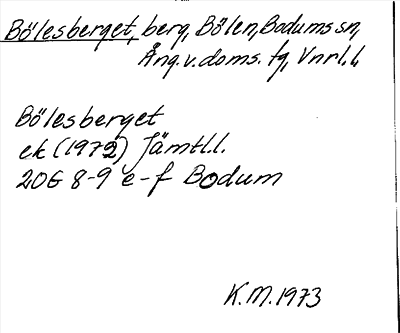 Bölesberget, berg, Bölen, Bodums sn,
Ång. v. doms. tg, Vnrl. l.
Bölesberget
ek (1972) Jämtl.l.
20G 8-9 e-f Bodum
K.M. 1973